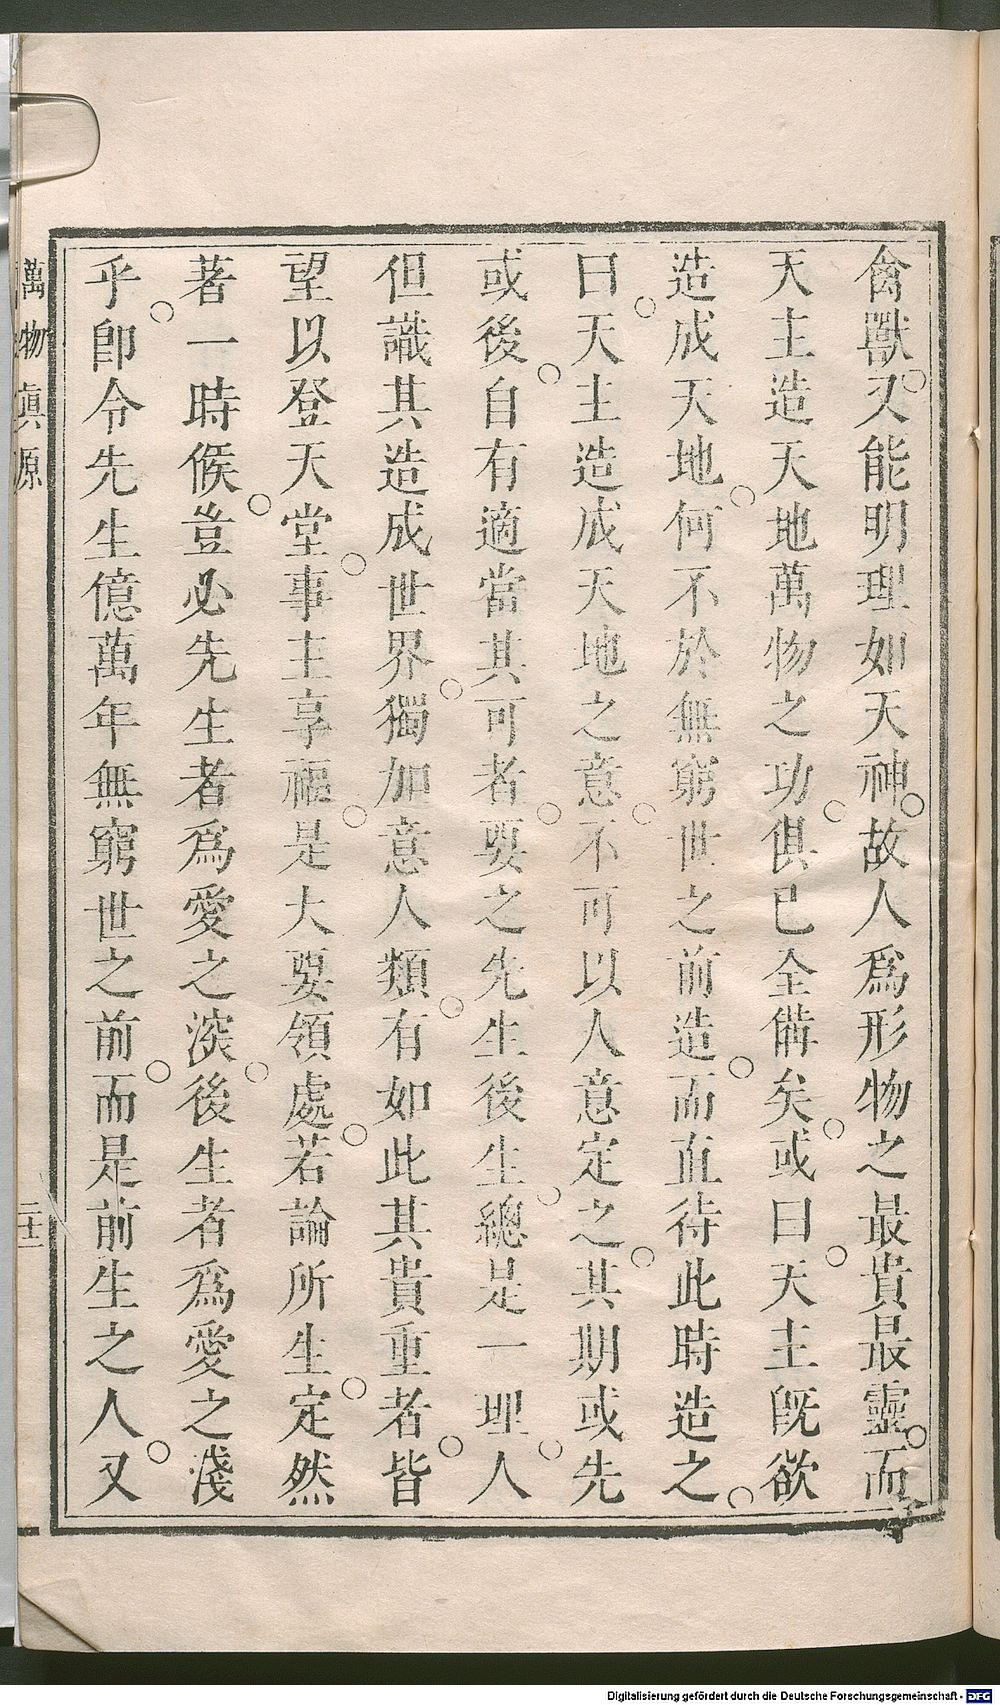 禽獸。又能明理如天神。故人爲形物之最貴最靈。而
天主造天地萬物之功。俱已全備矣。或曰。天主旣欲
造成天地。何不於無窮世之前造。而直待此時造之。
曰。天主造成天地之意。不可以人意定之。其期或先
或後。自有適當其可者。要之先生後生。總是一理。人
但識其造成世界。獨加意人類。有如此其貴重者。皆
望以登天堂。事主享福。是大要領處。若論所生。定然
著一時候。豈必先生者爲愛之深。後生者爲愛之淺
乎。卽令先生億萬年無窮世之前。而是前生之人。又
萬物眞原
二十二
Digitalisierung gefördert durch die Deutsche Forschungsgemeinschaft - DFG